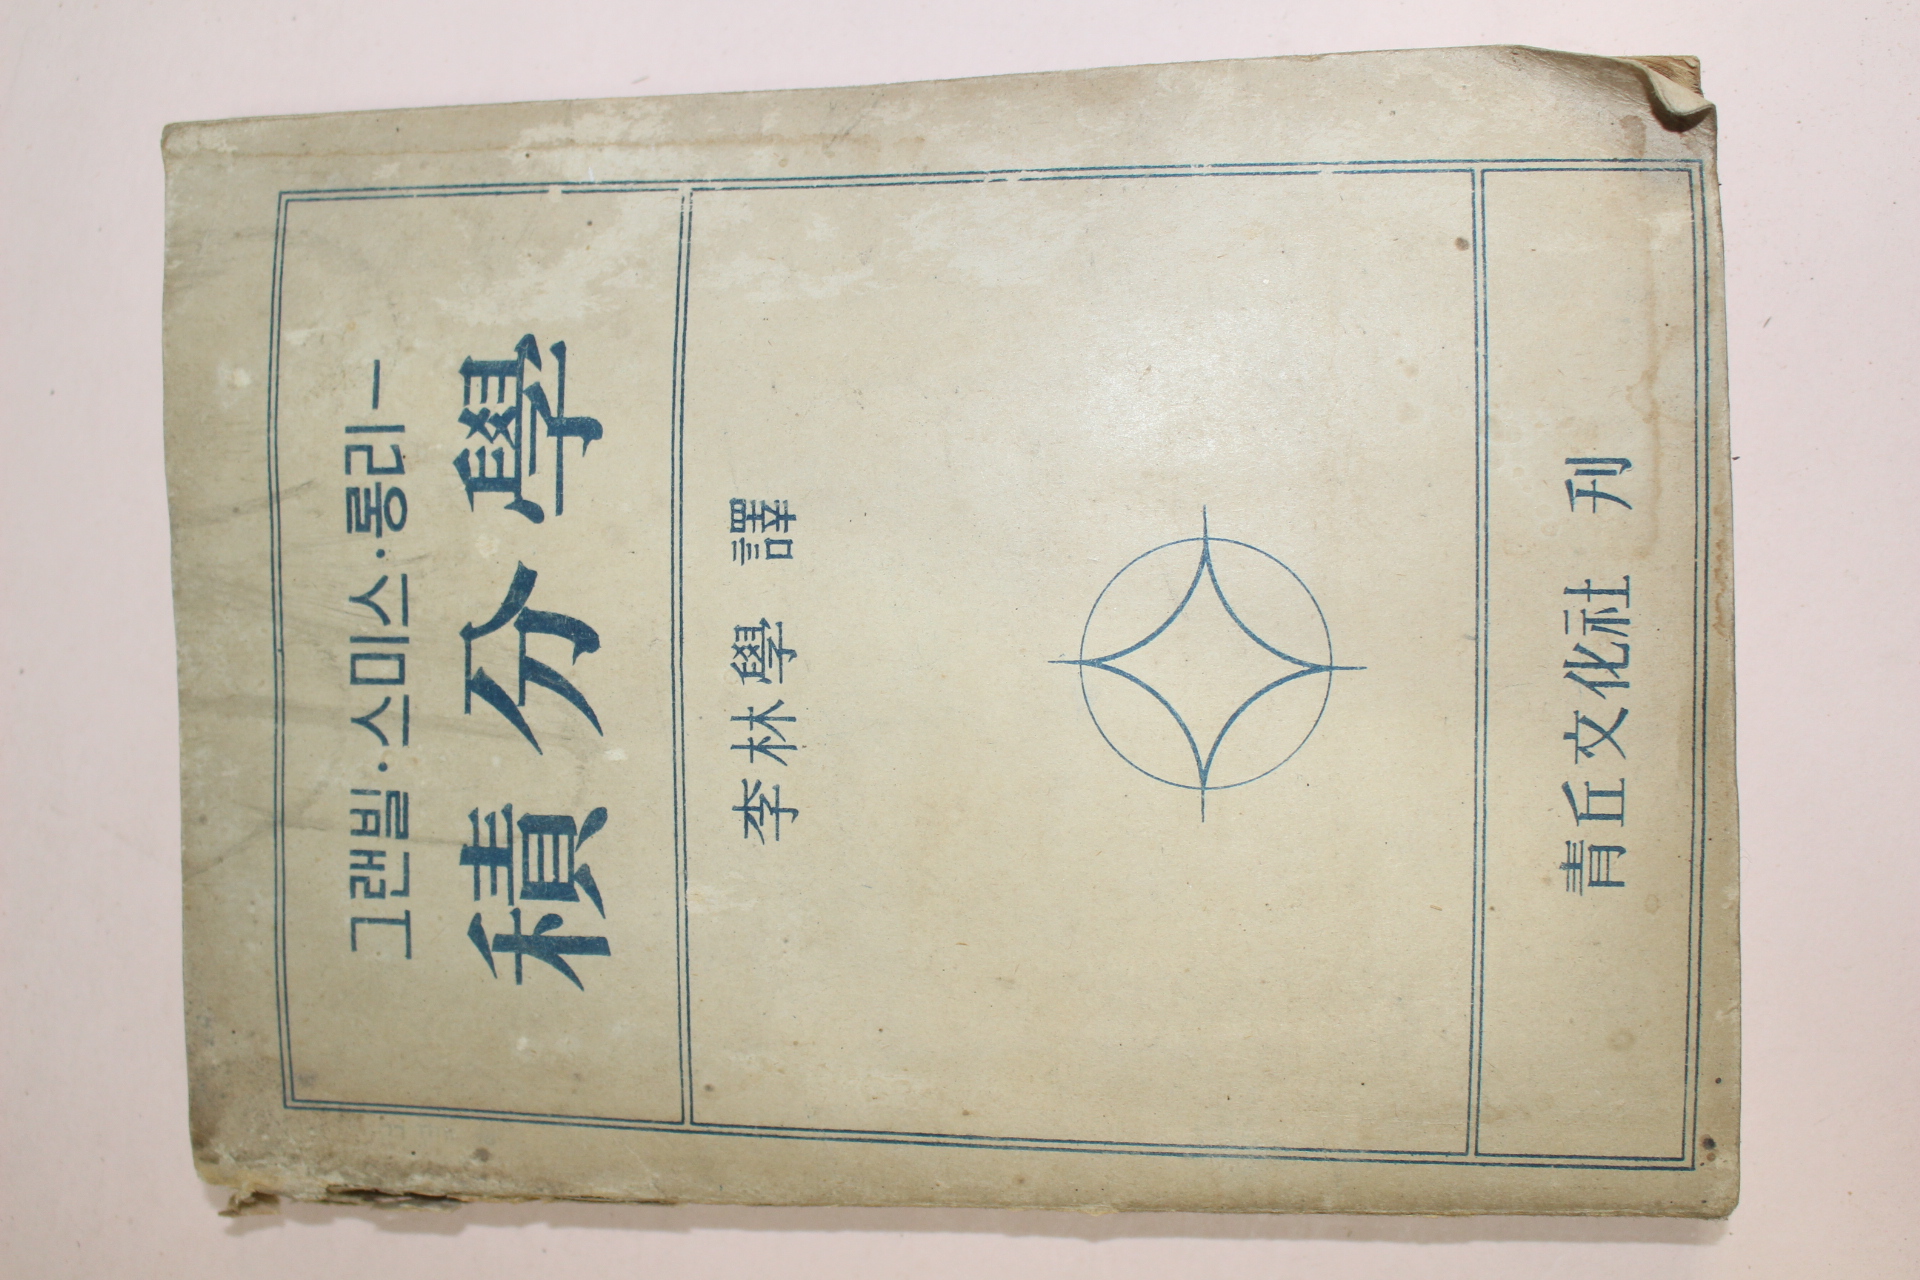 그랜빌·스미스·롱리ー
積分學
李林學 譯
青丘文化社 刊